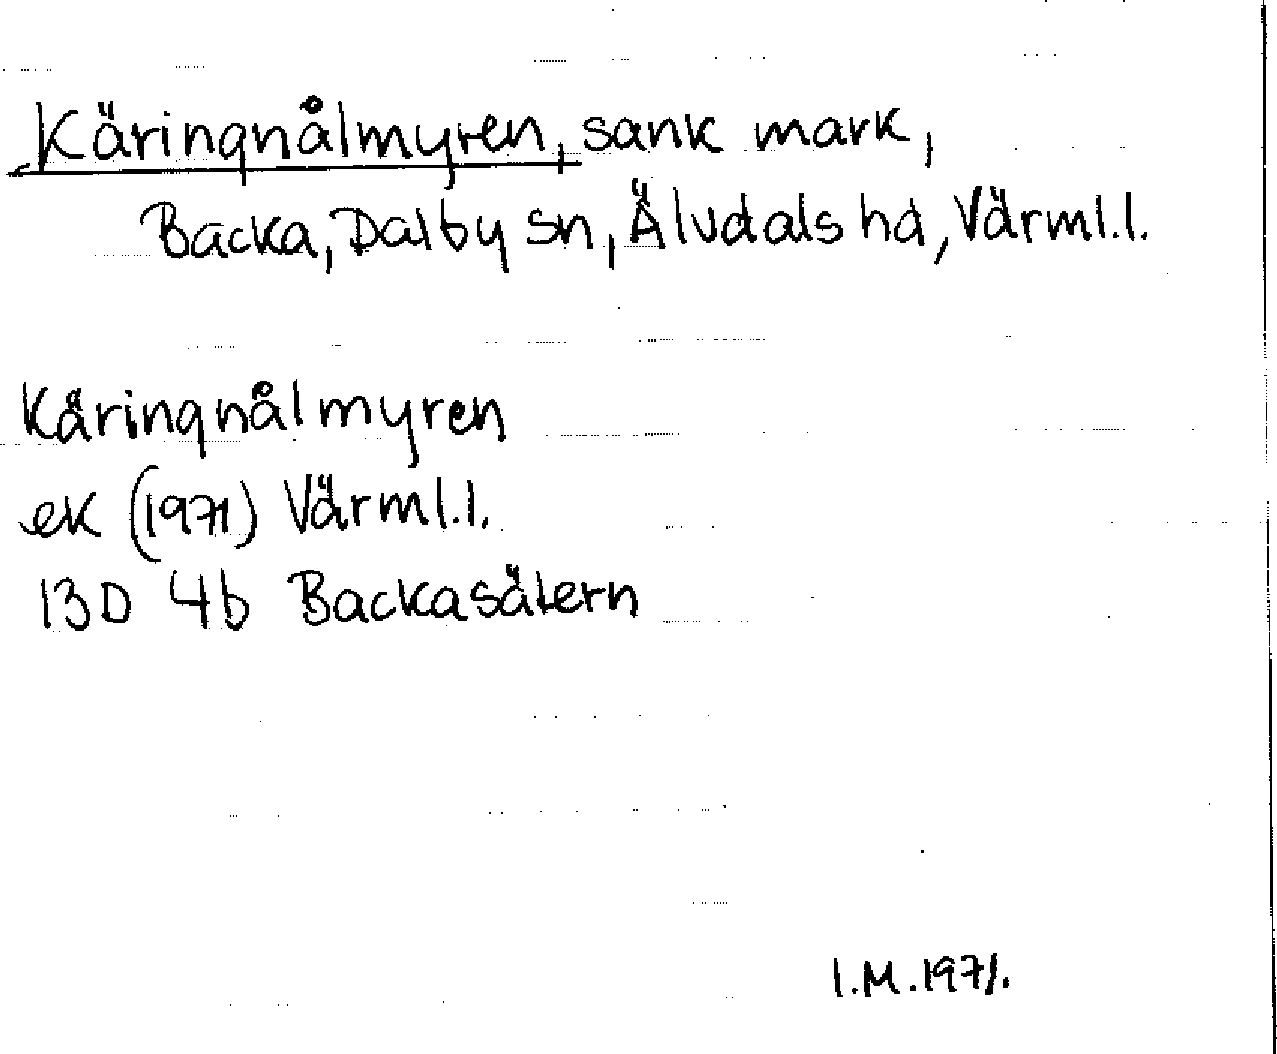 Käringnålmyren, sank mark,
Backa, Dalby sn, Älvdals hd, Värml.l.
Käringnålmyren
ek (1971) Värml.l.
13D 4b Backasätern
I.M.1971.